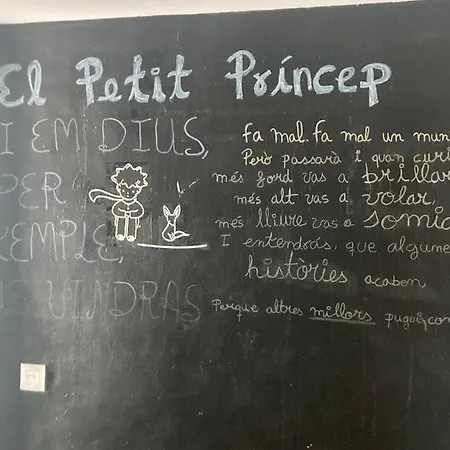 El Petit Príncep
I EM DIUS,
PER
XEMPLE,
VINDRAS
fa mal. fa mal un mun
Però passarà i quan curi
més ford vas a brillar
més alt vas a volar,
més lliure vas a somia
I entendràs, que algune
històries acaben,
Perque altres millors pugui, com